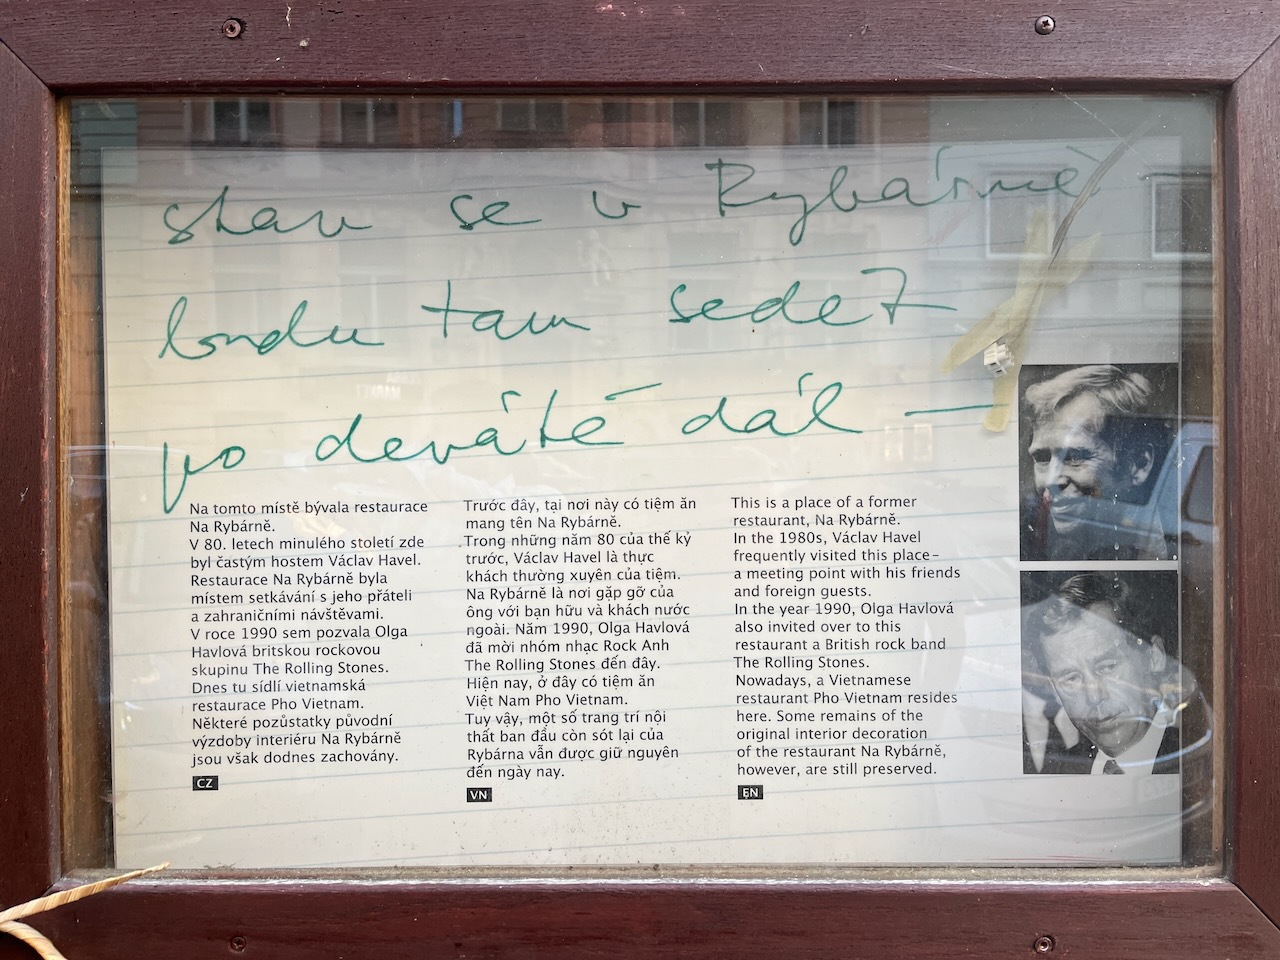 stav se v Rybárně –
budu tam sedět
po deváté dál —
Na tomto místě bývala restaurace
Na Rybárně.
V 80. letech minulého století zde
byl častým hostem Václav Havel.
Restaurace Na Rybárně byla
místem setkávání s jeho přáteli
a zahraničními návštěvami.
V roce 1990 sem pozvala Olga
Havlová britskou rockovou
skupinu The Rolling Stones.
Dnes tu sídlí vietnamská
restaurace Pho Vietnam.
Některé pozůstatky původní
výzdoby interiéru Na Rybárně
jsou však dodnes zachovány.
CZ
Trước đây, tại nơi này có tiệm ăn
mang tên Na Rybárně.
Trong những năm 80 của thế kỷ
trước, Václav Havel là thực
khách thường xuyên của tiệm.
Na Rybárně là nơi gặp gỡ của
ông với bạn hữu và khách nước
ngoài. Năm 1990, Olga Havlová
đã mời nhóm nhạc Rock Anh
The Rolling Stones đến đây.
Hiện nay, ở đây có tiệm ăn
Việt Nam Pho Vietnam.
Tuy vậy, một số trang trí nội
thất ban đầu còn sót lại của
Rybárna vẫn được giữ nguyên
đến ngày nay.
VN
This is a place of a former
restaurant, Na Rybárně.
In the 1980s, Václav Havel
frequently visited this place –
a meeting point with his friends
and foreign guests.
In the year 1990, Olga Havlová
also invited over to this
restaurant a British rock band
The Rolling Stones.
Nowadays, a Vietnamese
restaurant Pho Vietnam resides
here. Some remains of the
original interior decoration
of the restaurant Na Rybárně,
however, are still preserved.
EN